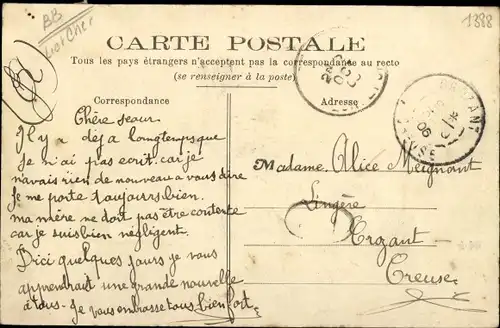 BB
Loir Cher
1388
CARTE POSTALE
Tous les pays étrangers n'acceptent pas la correspondance au recto
(se renseigner à la poste)
Correspondance
Adresse
Chère seœur
Il y a déjà longtemps que
Je n'ai pas ecrit. car je
n'avais rien de nouveau a vous dire
Je me porte toujours bien.
ma mère ne doit pas être contente
car je suis bien négligent.
D'ici quelques jours je vous
apprendrait une grande nouvelle
a tous - Je vous embrasse tous bien fort.
Madame. Alice Meignant
Lingère
Crozant
Creuse
CROZANT
CREUSE